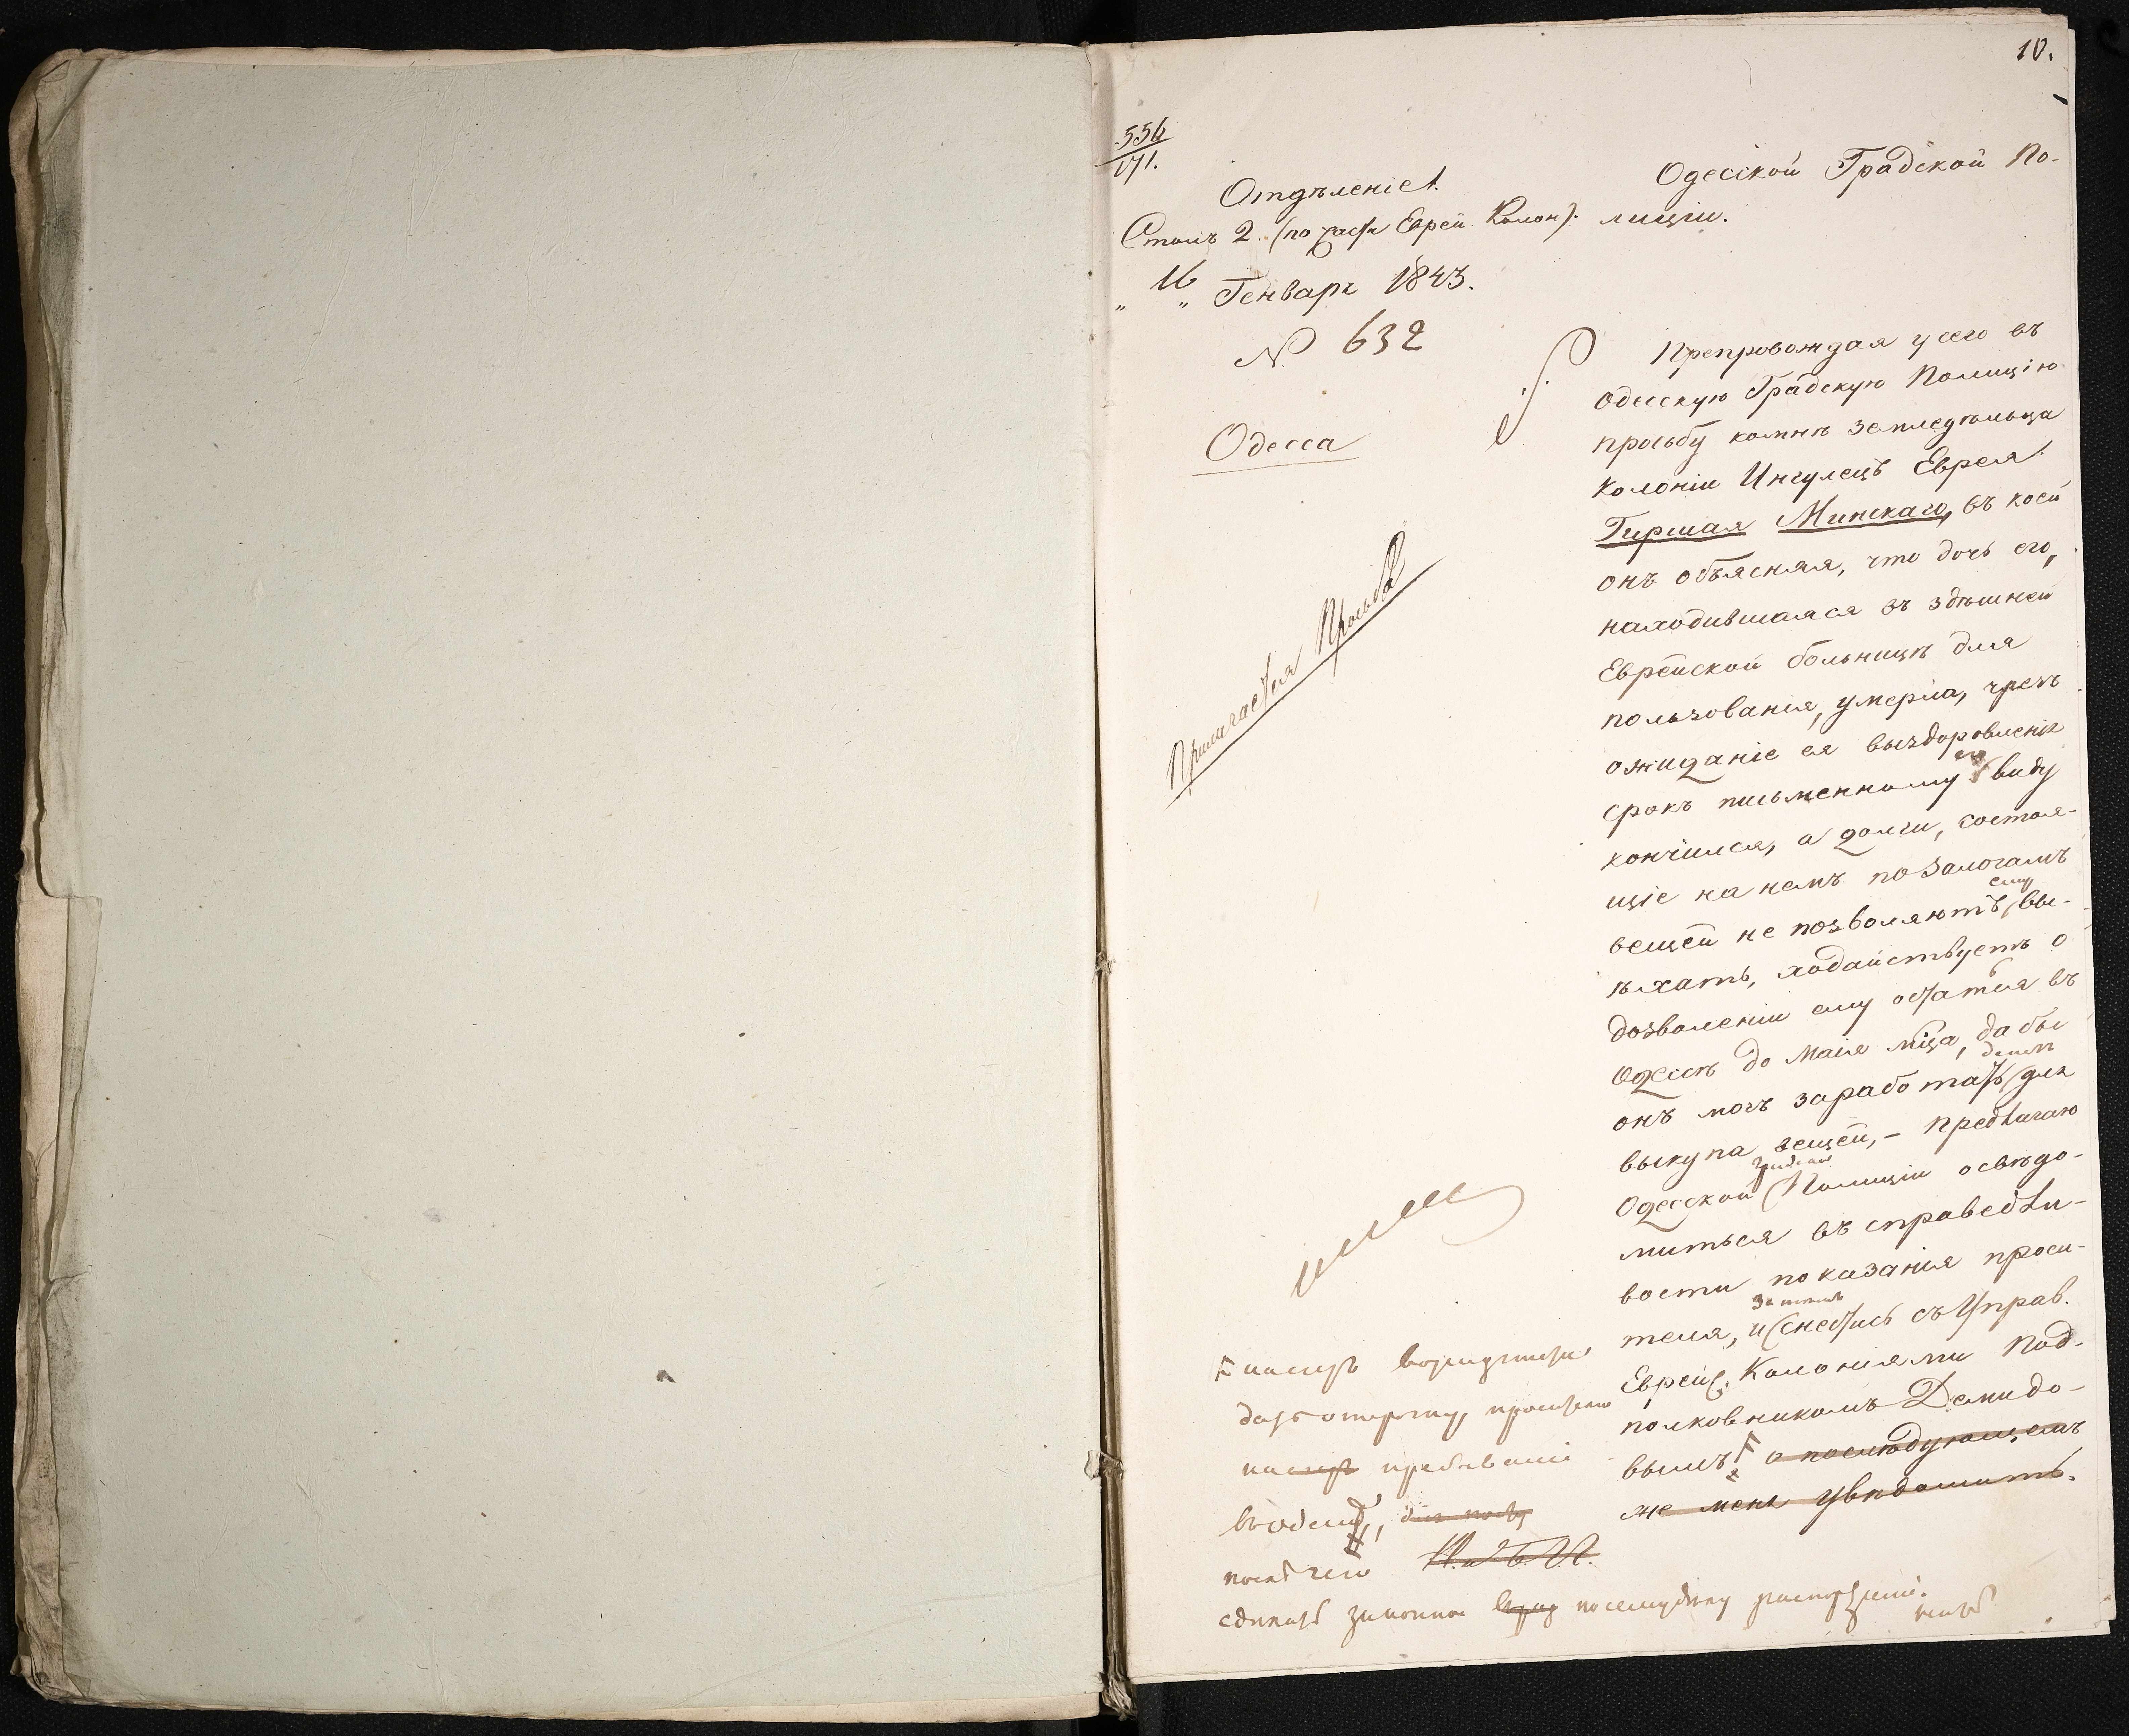 10.
556
171.
Отдѣленіе 1.
Столъ 2. (по части Еврей. Колон).
„ 16 „ Генваря 1843.
№ 632
Одесса
Прилагается Просьба
Одесской Градской По-
лиціи.
Препровождая у сего въ
Одесскую Градскую Полицію
просьбу комнѣ земледѣльца
Колоніи Ингулецъ Еврея
Гиршая Минскаго, въ коей
онъ объясняя, что дочь его,
находившаяся въ здѣшней
Еврейской больницѣ для
пользованія, умерла, чрезъ
ожиданіе ея выздоровленія
срокъ письменному его виду
кончился, а долги, состоя-
щіе на немъ по залогамъ
вещей не позволяютъ ему вы-
ѣхать, ходайствуетъ о
дозволеніи ему остаться въ
Одессѣ до Маія мѣца, дабы
онъ могъ заработать денегъ для
выкупа вещей, - предлагаю
Одесской Градской Полиціи освѣдо-
миться въ справедли-
вости показанія проси-
теля, и снестись съ Управ.
Еврейс. Колоніями Под-
полковникомъ Демидо-
вымъ о послѣдующемъ
же меня увѣдомить.
дать отсрочку
пребываніи
въ Одессѣ,
послѣ чего
сдѣлать законное по сему предмету распоряженіе.